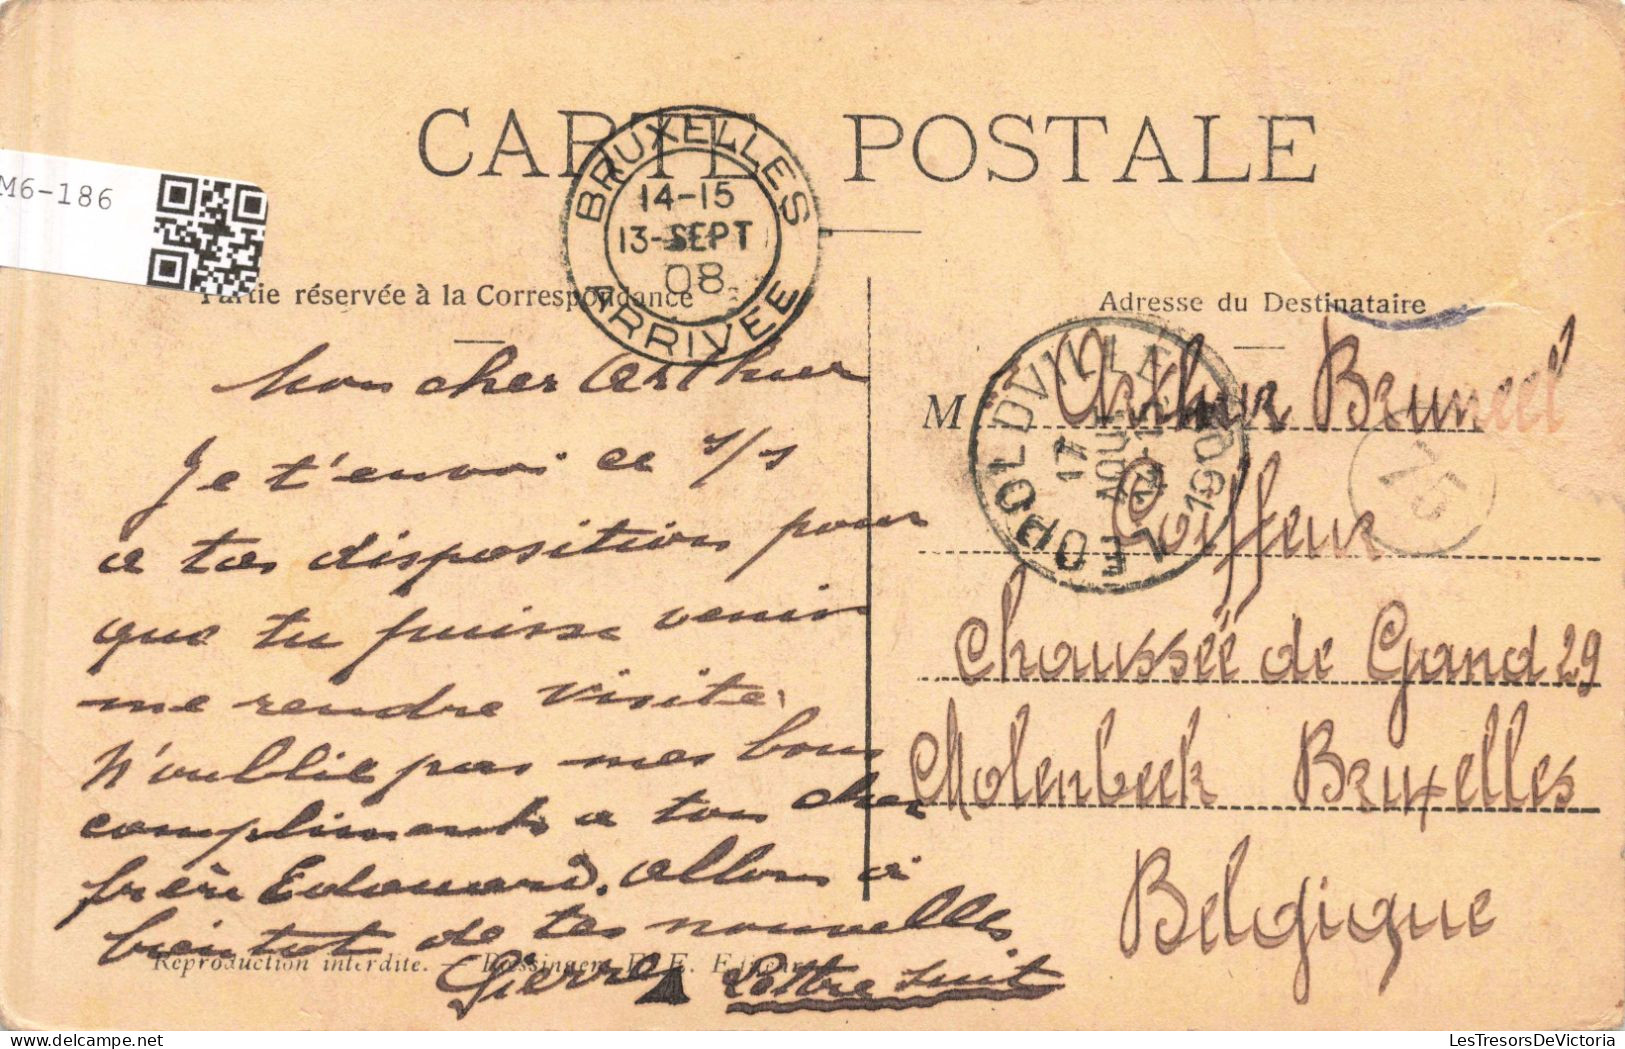 CARTE POSTALE
BRUXELLES
14-15
13-SEPT
08
ARRIVEE
M6-186
Partie réservée à la Correspondance
Adresse du Destinataire
Mon cher Arthur
Je t'envoi ce s/s
a tas disposition pour
que tu puisse venir
me rendre visite.
N'oublie pas mes bons
compliments a ton cher
frère Edouard. Allons à
bientot de tes nouvelles.
Pierre Lettre suit
Reproduction interdite.
LEOPOLDVILLE
17
AOUT
1908
M Arthur Bruneel
75
Coiffeur
Chaussée de Gand 29
Molenbeek Bruxelles
Belgique
LesTresorsDeVictoria (delcampe.net)